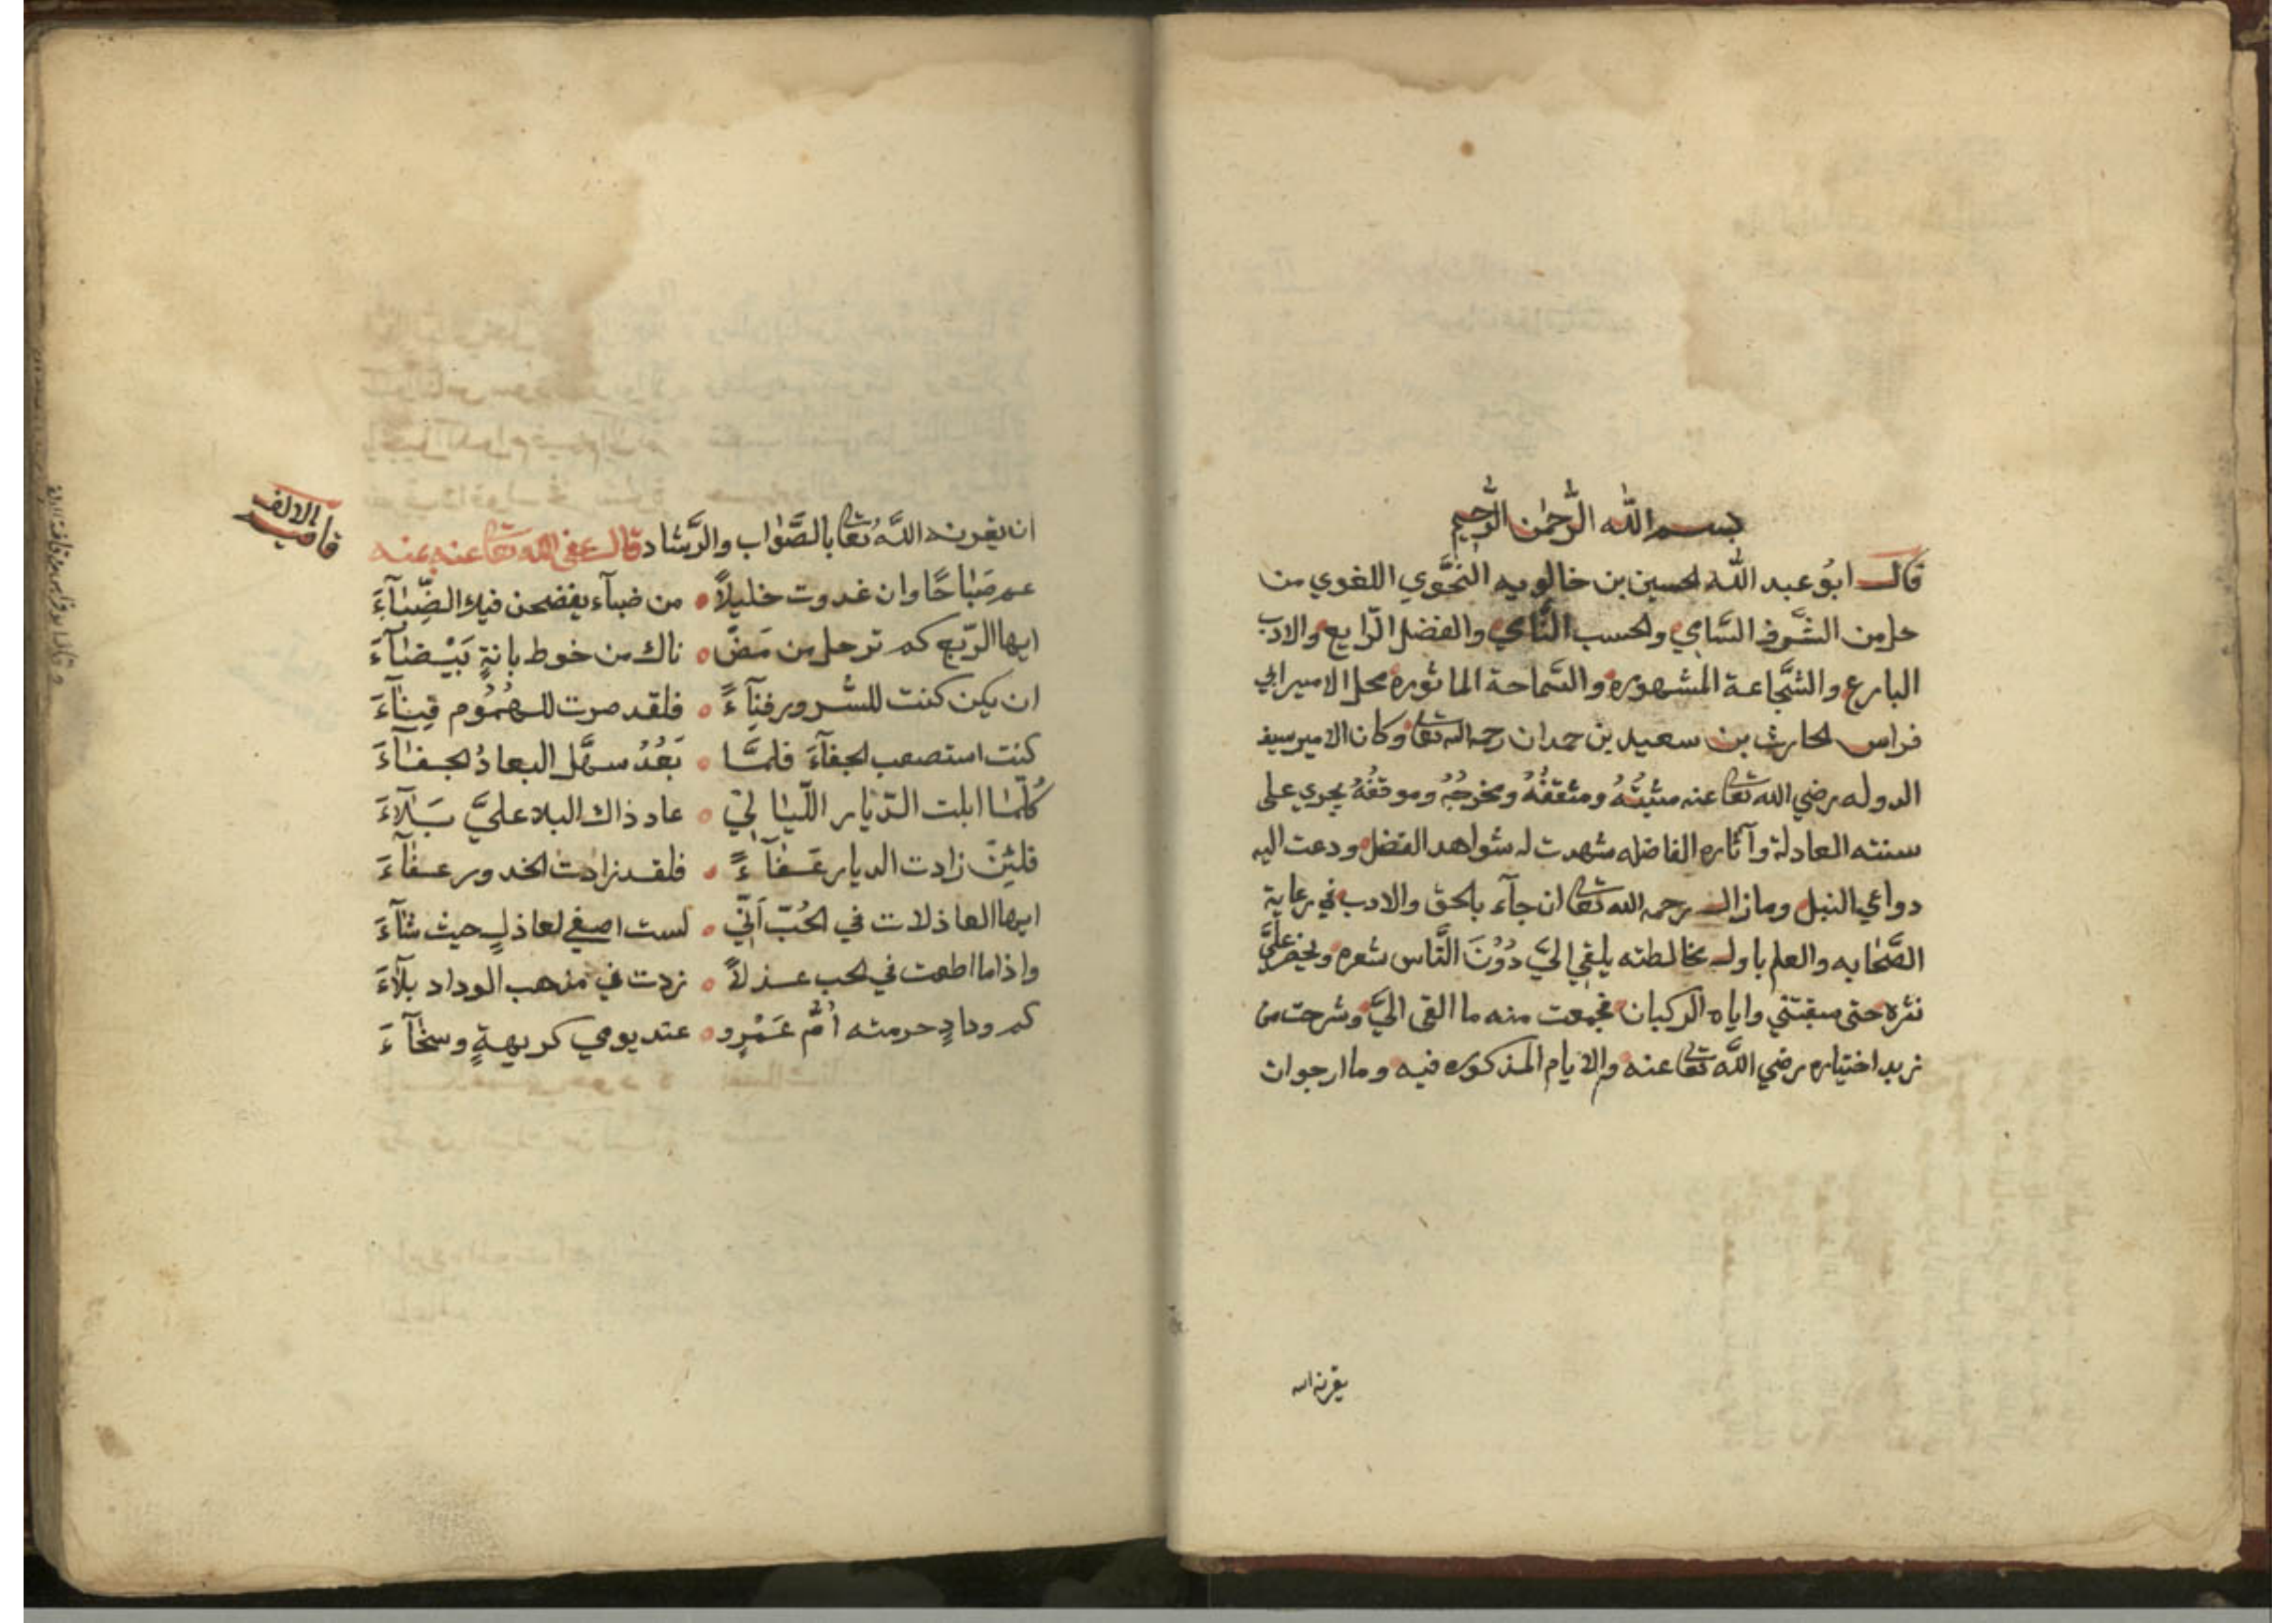 بسم الله الرَّحمٰن الرَّحيم
قال ابوُ عبد الله الحسين بن خالويه النَّحَّوي اللغوي من
حل من الشَّرف السَّامي والحسب النَّامي والفضل الرّايع والادب
البارع والشَّجاعة المشهوره والسَّماحة الماثوره محل الامير ابي
فراس الحارث بن سعيد بن حمدان رحمه الله تعا وكان الامير سيف
الدوله رضي الله تعا عنه مثبتُهُ ومثقفُهُ ومخرجُهُ وموقفُهُ يجري على
سنته العادلة وآثاره الفاضله شهدت له شواهد الفضل ودعت اليه
دواعي النبل وما زال رحمه الله تعا ان جآء بالحق والادب في رعاية
الصَّحابه والعلم باول مخالطته يلقي اليَّ دُوْنَ النَّاس شعره ويحضر عليَّ
نثره حتى سبقتني واياه الركبان فجمعت منه ما القى اليَّ وشرحت من
نريد اختياره رضي الله تعا عنه والايام المذكوره فيه وما ارجوات
يقرنه الله
ان يقرنه اللَّهُ تعا بالصَّوٰاب والرَّشاد قال عفى الله تعا عنه بمنه
قافية الالف
عم صَبٰاحًا وان غدوت خليلاً ۰ من ضبآء يفضحن فيك الضِّبٰآءَ
ايها الرّبع كم ترحل من مَضَّ ۰ ناك من خوط بانةٍ بَيْضٰآءَ
ان يكن كنت للسُّرور فنآءً ۰ فلقد صرت للهُمُوم قِنٰآءَ
كنت استصعب الجفآءَ فلمَّا ۰ بَعُدُ سهَّل البعادُ الجفٰآءَ
كُلّمٰا ابلت الدّيٰار اللّيٰا ليّ ۰ عاد ذاك البلاء عليَّ بَلآءَ
فلئِنّ زادت الديار عَفٰآءً ۰ فلقد زادت الخدور عفٰآءَ
ايها العاذلات في الحُبّ اَنّي ۰ لست اصغي لعاذلٍ حيث شآءَ
واذا ما اطعت في الحب عذلاً ۰ زدت في مذهب الوداد بلآءَ
كم ودادٍ حرمته اُمُّ عَمْرٍو ۰ عند يومي كريهةٍ وسخٰآءَ